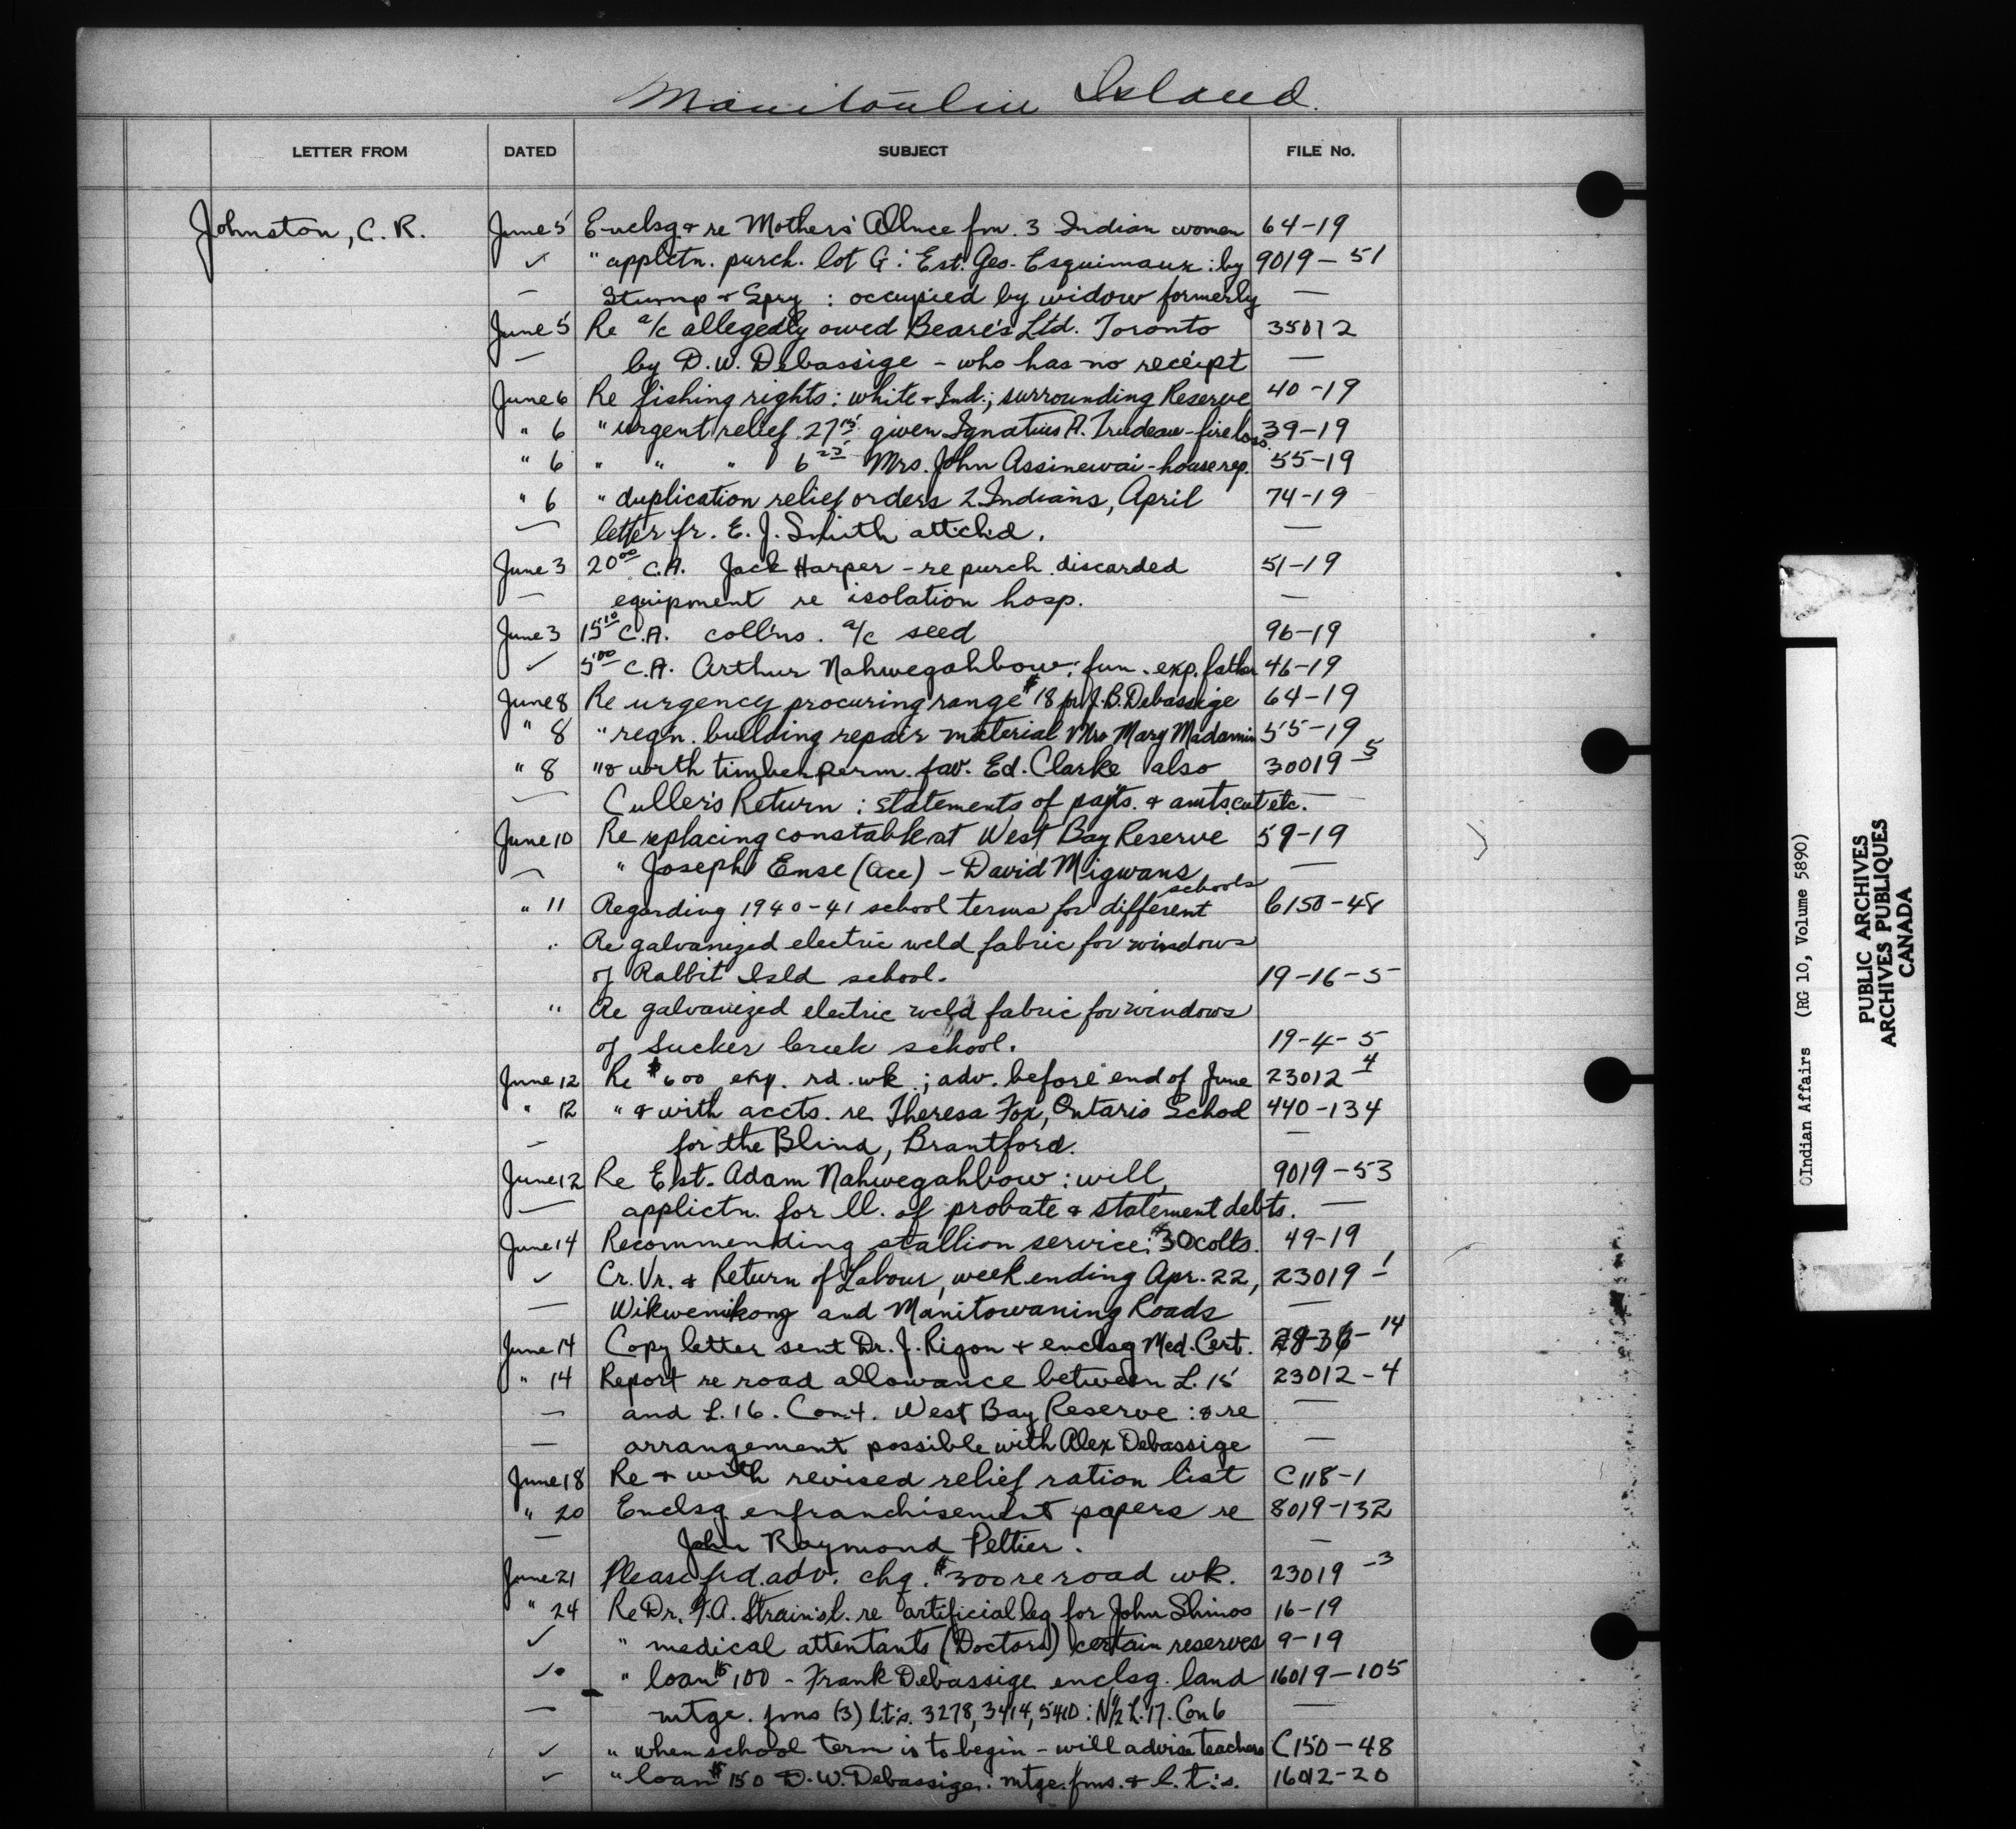 Manitoulin Island.
LETTER FROM DATED SUBJECT FILE No.
Johnston, C. R. June 5 Enclsg & re Mothers' Allnce fm. 3 Indian women 64-19
✓ " applctn. purch. lot G : Est. Geo. Esquimaux : by 9019-51
— Stump & Spry : occupied by widow formerly —
June 5 Re a/c allegedly owed Beare's Ltd. Toronto 35012
— by D. W. Debassige - who has no receipt —
June 6 Re fishing rights : white & Ind.; surrounding Reserve 40-19
" 6 " urgent relief 27 15 given Ignatius A. Trudeau - fire loss. 39-19
" 6 " " " 6 25 Mrs. John Assinewai - house rep. 55-19
" 6 " duplication relief orders 2 Indians, April 74-19
— letter fr. E. J. Smith attchd. —
June 3 20 00 C.A. Jack Harper - re purch. discarded 51-19
— equipment re isolation hosp. —
June 3 15 10 C.A. collns. a/c seed 96-19
✓ 5 00 C.A. Arthur Nahwegahbow : fun. exp. father 46-19
June 8 Re urgency procuring range $18 for J. B. Debassige 64-19
" 8 " reqn. building repair material Mrs Mary Madamin 55-19
" 8 " & with timber perm. fav. Ed. Clarke also 30019-5
— Culler's Return : statements of payts. & amts cut etc. —
June 10 Re replacing constable at West Bay Reserve 59-19
— " Joseph Ense (Ace) - David Migwans —
" 11 Regarding 1940-41 school terms for different schools 6150-48
" Re galvanized electric weld fabric for windows
of Rabbit Isld school. 19-16-5
" Re galvanized electric weld fabric for windows
of Sucker Creek school. 19-4-5
June 12 Re $600 exp. rd. wk.; adv. before end of June 23012-4
" 12 " & with accts. re Theresa Fox, Ontario School 440-134
— for the Blind, Brantford. —
June 12 Re Est. Adam Nahwegahbow : will, 9019-53
— applictn. for ll. of probate & statement debts. —
June 14 Recommending stallion service : $30 colts. 49-19
✓ Cr. Vr. & Return of Labour, week ending Apr. 22, 23019-1
— Wikwemikong and Manitowaning Roads —
June 14 Copy letter sent Dr. J. Rigon & enclsg Med. Cert. -14
" 14 Report re road allowance between L. 15 23012-4
— and L. 16. Con. 4. West Bay Reserve : & re —
— arrangement possible with Alex Debassige —
June 18 Re & with revised relief ration list C118-1
" 20 Enclsg enfranchisement papers re 8019-132
— John Raymond Peltier. —
June 21 Please frd. adv. chq. $300 re road wk. 23019-3
" 24 Re Dr. F. A. Strain's l. re artificial leg for John Shinos 16-19
✓ " medical attentants (Doctors) certain reserves 9-19
✓ " loan $100 - Frank Debassige enclsg. land 16019-105
— mtge. fms (3) l.t.'s. 3278, 3414, 5410 : N½ L. 17. Con 6 —
✓ " when school term is to begin - will advise teachers C150-48
✓ " loan $150 D. W. Debassige : mtge. fms. & l.t.'s. 16012-20
OIndian Affairs (RG 10, Volume 5890)
PUBLIC ARCHIVES
ARCHIVES PUBLIQUES
CANADA